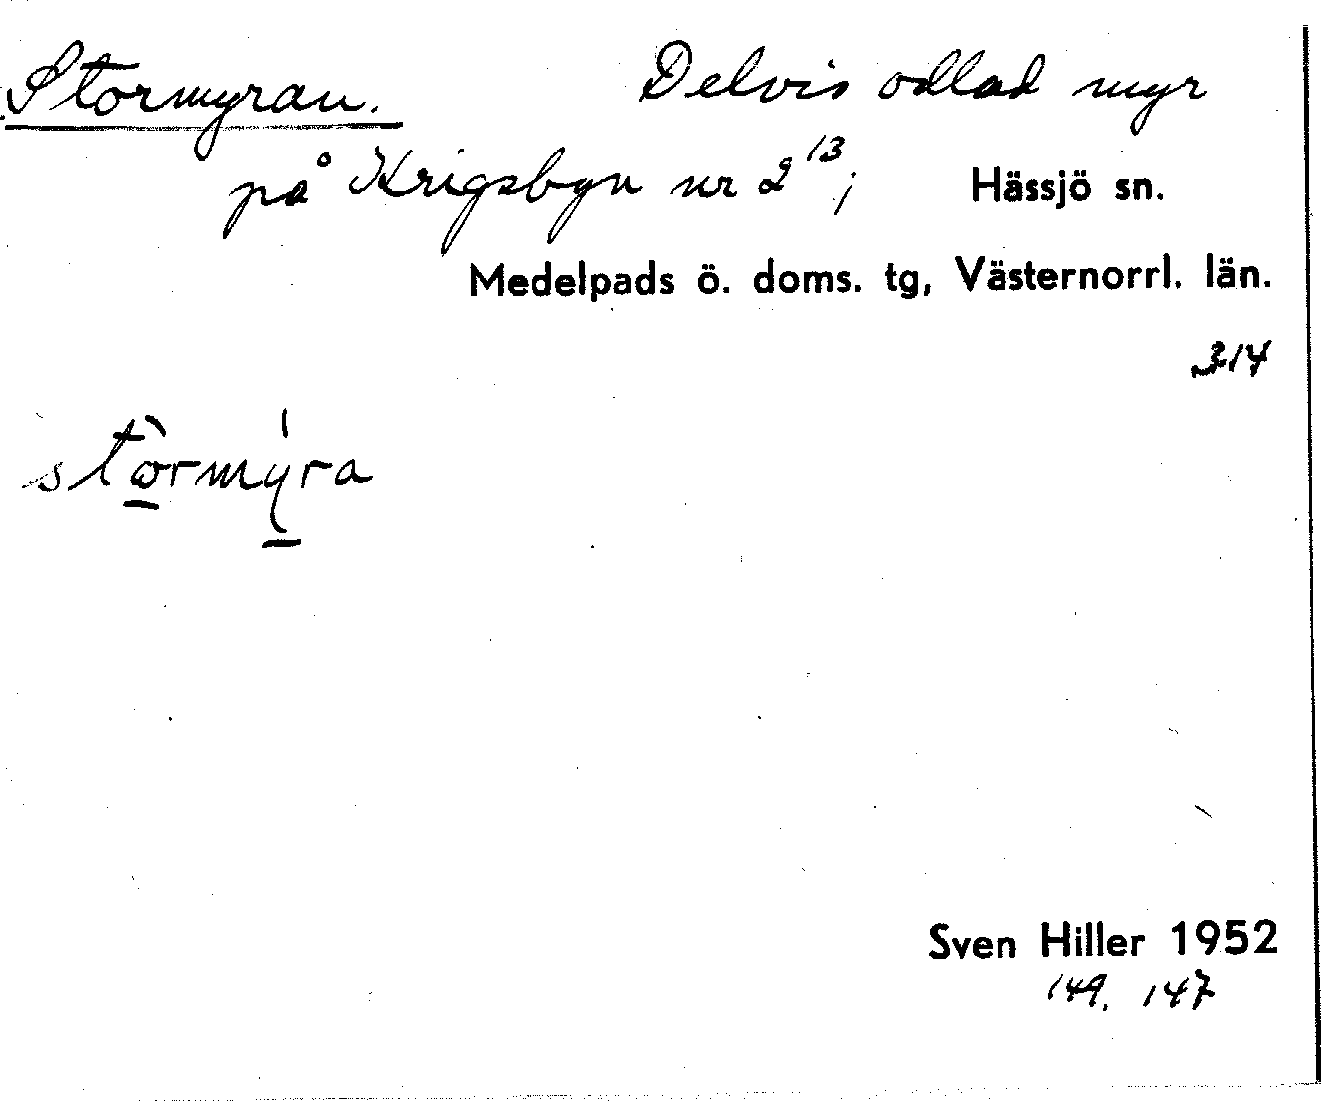 Stormyran. Delvis odlad myr
på Krigsbyn nr 2¹³; Hässjö sn.
Medelpads ö. doms. tg, Västernorrl. län.
314
stòrmýra
Sven Hiller 1952
149. 147